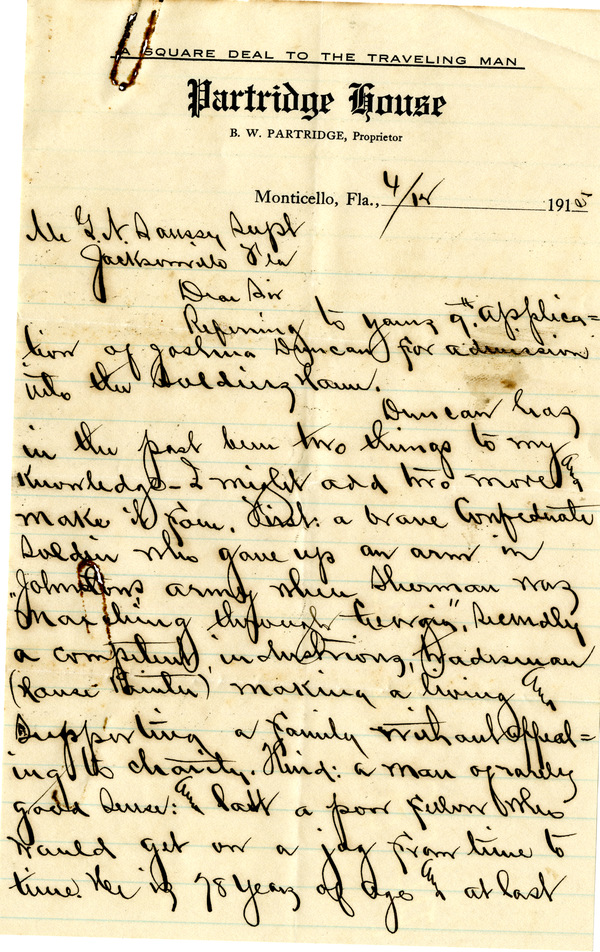 A SQUARE DEAL TO THE TRAVELING MAN
Partridge House
B. W. PARTRIDGE, Proprietor
Monticello, Fla., 4/12 191
Mr G. N. Saussy Supt
Jacksonville Fla
Dear Sir
Referring to yours 9th. applica=
tion of Joshua Duncan for admission
into the Soldiers Home.
Duncan has
in the past been two things to my
knowledge - I might add two more &
make it four. First: a brave Confederate
Soldier who gave up an arm in
"Johnstons army when Sherman was
Marching through Georgia", Secondly
a competent, industrious, tradesman
(House Painter) making a living &
Supporting a family without appeal=
ing to charity. Third: a man of rarely
good sense: & last a poor fellow who
would get on a jag from time to
time. He is 78 years of age & at last